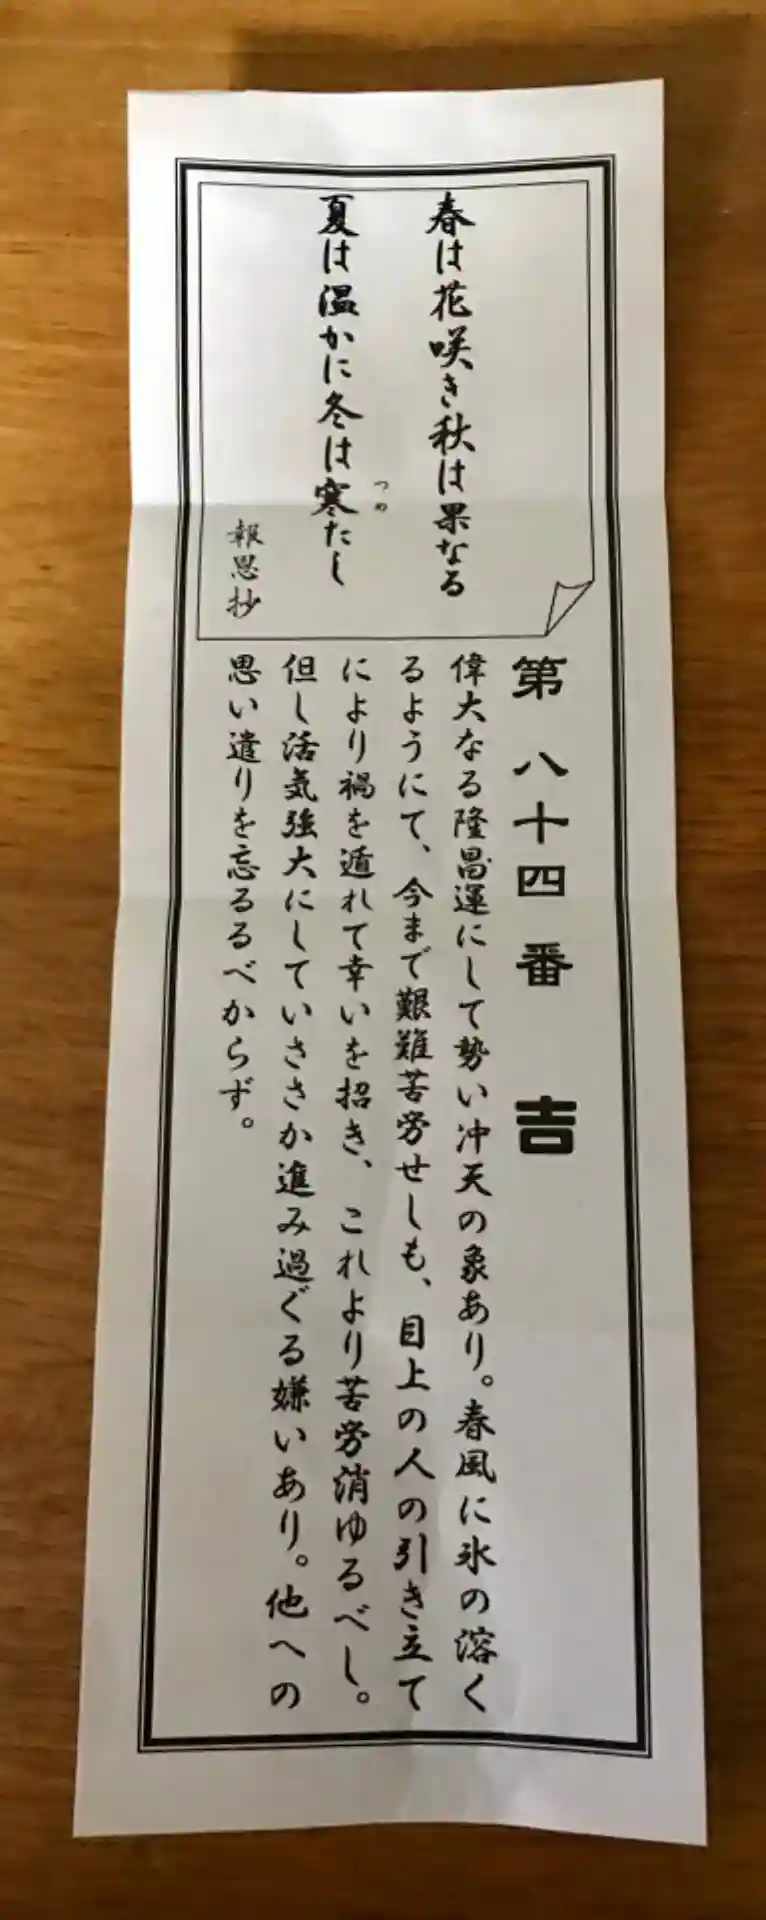 春は花咲き秋は果なる
夏は温かに冬は寒たし
つめ
報恩抄
第八十四番 吉
偉大なる隆昌運にして勢い冲天の象あり。春風に氷の溶く
るようにて、今まで艱難苦労せしも、目上の人の引き立て
により禍を遁れて幸いを招き、これより苦労消ゆるべし。
但し活気強大にしていささか進み過ぐる嫌いあり。他への
思い遣りを忘るるべからず。